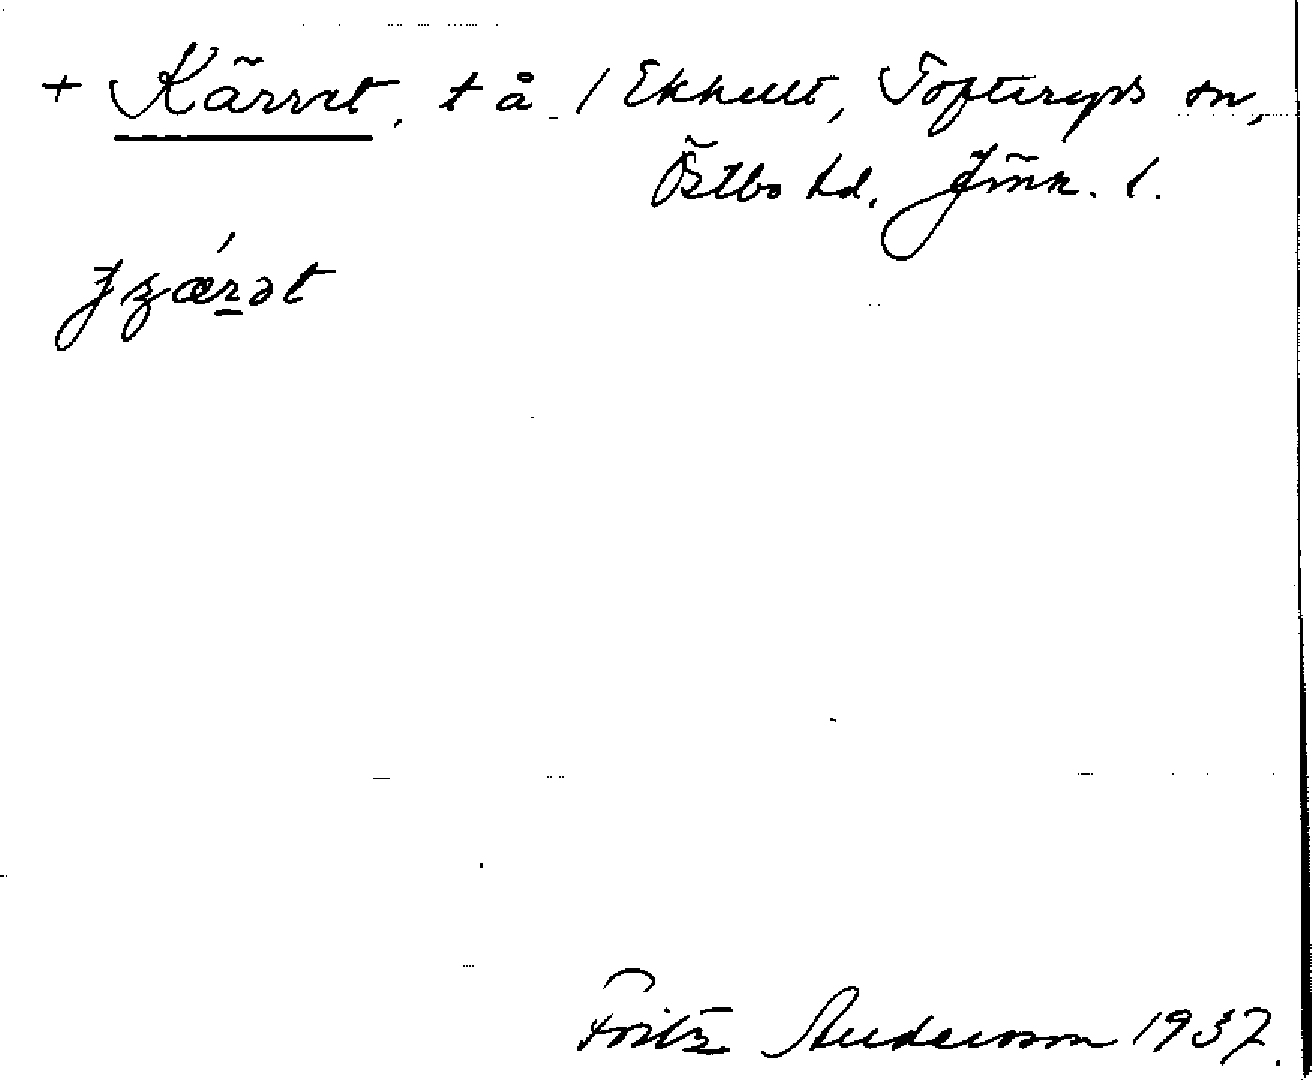 + Kärret, t å / Ekhult, Tofteryds sn,
Östbo hd. Jönk. l.
Fritz Andersson 1937.